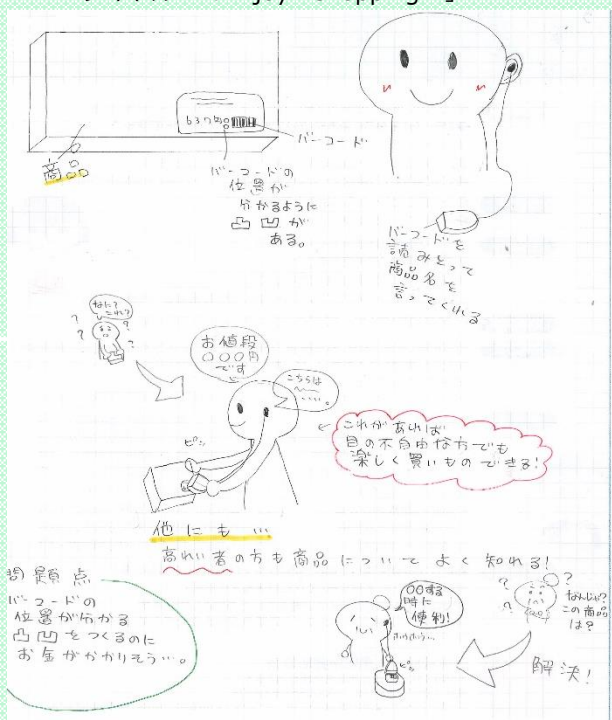 商品
バーコード
バーコードの
位置が
分かるように
凸凹が
ある。
バーコードを
読みとって
商品名を
言ってくれる
なに？
これ？
お値段
〇〇〇円
です
こちらは
〜
……。
ピッ
これがあれば
目の不自由な方でも
楽しく買いものできる！
他にも…
高れい者の方も商品についてよく知れる！
問題点
バーコードの
位置が分かる
凸凹をつくるのに
お金がかかりそう…。
〇〇する
時に
便利！
ピッ
なんじゃ？
この商品
は？
解決！